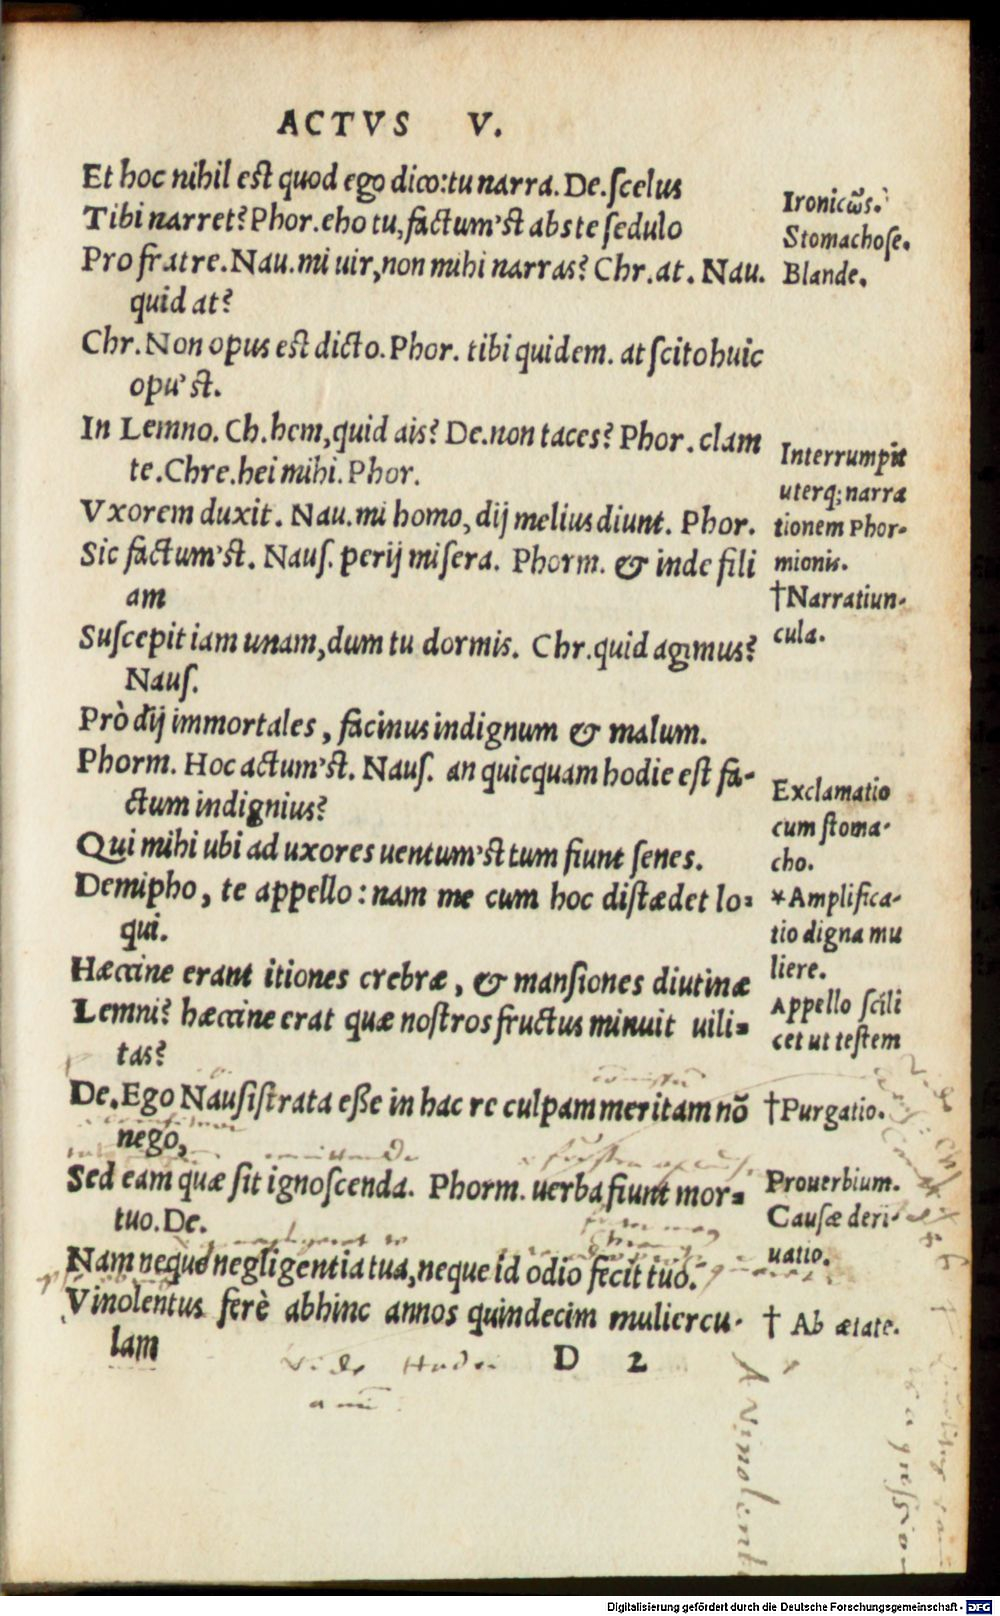 ACTVS V.
Et hoc nihil est quod ego dico: tu narra. De. scelus
Tibi narret? Phor. eho tu, factum'st abs te sedulo
Pro fratre. Nau. mi uir, non mihi narras? Chr. at. Nau.
quid at?
Chr. Non opus est dicto. Phor. tibi quidem. at scito huic
opu' st.
In Lemno. Ch. hem, quid ais? De. non taces? Phor. clam
te. Chre. hei mihi. Phor.
Vxorem duxit. Nau. mi homo, dij melius diunt. Phor.
Sic factum'st. Naus. perij misera. Phorm. & inde fili
am
Suscepit iam unam, dum tu dormis. Chr. quid agimus?
Naus.
Prò dij immortales, facinus indignum & malum.
Phorm. Hoc actum'st. Naus. an quicquam hodie est fa-
ctum indignius?
Qui mihi ubi ad uxores uentum'st tum fiunt senes.
Demipho, te appello: nam me cum hoc distædet lo-
qui.
Hæccine erant itiones crebræ, & mansiones diutinæ
Lemni? hæccine erat quæ nostros fructus minuit uili-
tas?
De. Ego Nausistrata esse in hac re culpam meritam nō
nego,
Sed eam quæ sit ignoscenda. Phorm. uerba fiunt mor-
tuo. De.
Nam neque negligentia tua, neque id odio fecit tuo.
Vinolentus ferè abhinc annos quindecim muliercu-
lam
D 2
Ironicω̃s.
Stomachose.
Blande.
Interrumpit
uterq; narra
tionem Phor-
mionis.
†Narratiun-
cula.
Exclamatio
cum stoma-
cho.
*Amplifica-
tio digna mu
liere.
Appello scili
cet ut testem
†Purgatio.
Prouerbium.
Causæ deri-
uatio.
† Ab ætate.